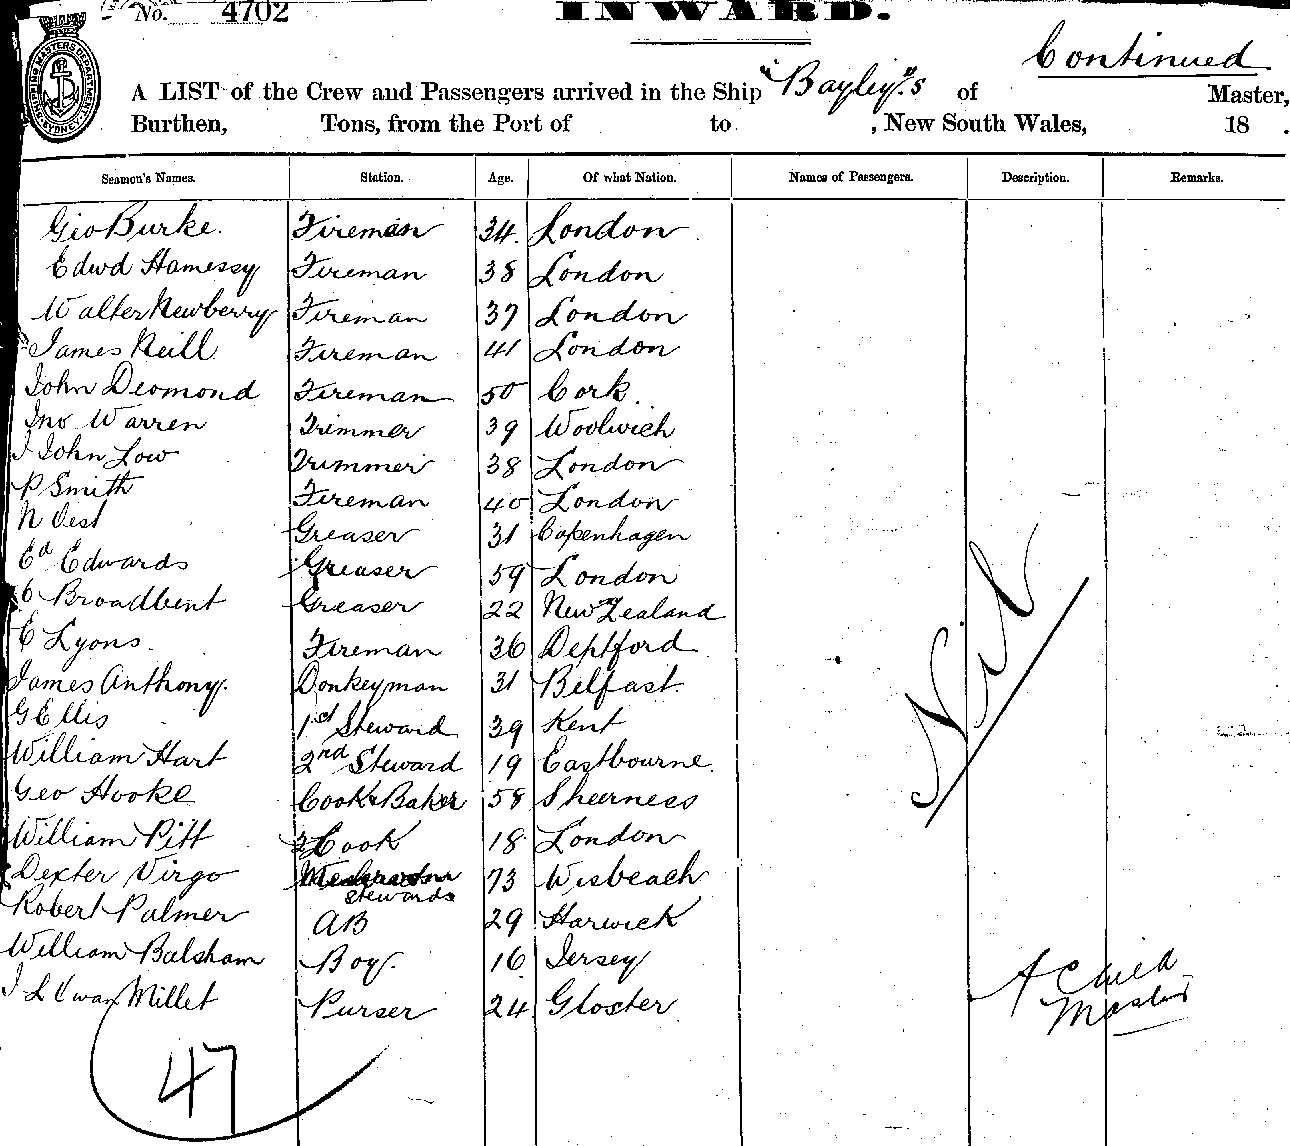 No. 4702 INWARD.
Continued
A LIST of the Crew and Passengers arrived in the Ship "Bayley".s of Master,
Burthen, Tons, from the Port of to , New South Wales, 18 .
Seamen's Names. Station. Age. Of what Nation. Names of Passengers. Description. Remarks.
Geo Burke. Fireman 34. London
Edwd Hamessy Fireman 38 London
Walter Newberry Fireman 37 London
James Neill Fireman 41 London
John Desmond Fireman 50 Cork.
Jno Warren Trimmer 39 Woolwich
J John Low Trimmer 38 London
P Smith Fireman 40 London
N Oest Greaser 31 Copenhagen
Ed Edwards Greaser 59 London
C Broadbent Greaser 22 New Zealand
E Lyons. Fireman 36 Deptford
James Anthony. Donkeyman 31 Belfast.
G Ellis 1st Steward 39 Kent
William Hart 2nd Steward 19 Eastbourne.
Geo Hooke Cook & Baker 58 Sheerness
William Pitt 2 Cook 18 London
Dexter Virgo stewards 73 Wisbeach
Robert Palmer AB 29 Harwick
William Balsham Boy. 16 Jersey
Millet Purser 24 Gloster
Nil
A Child
Master
47
SHIPPING MASTERS DEPARTMENT SYDNEY